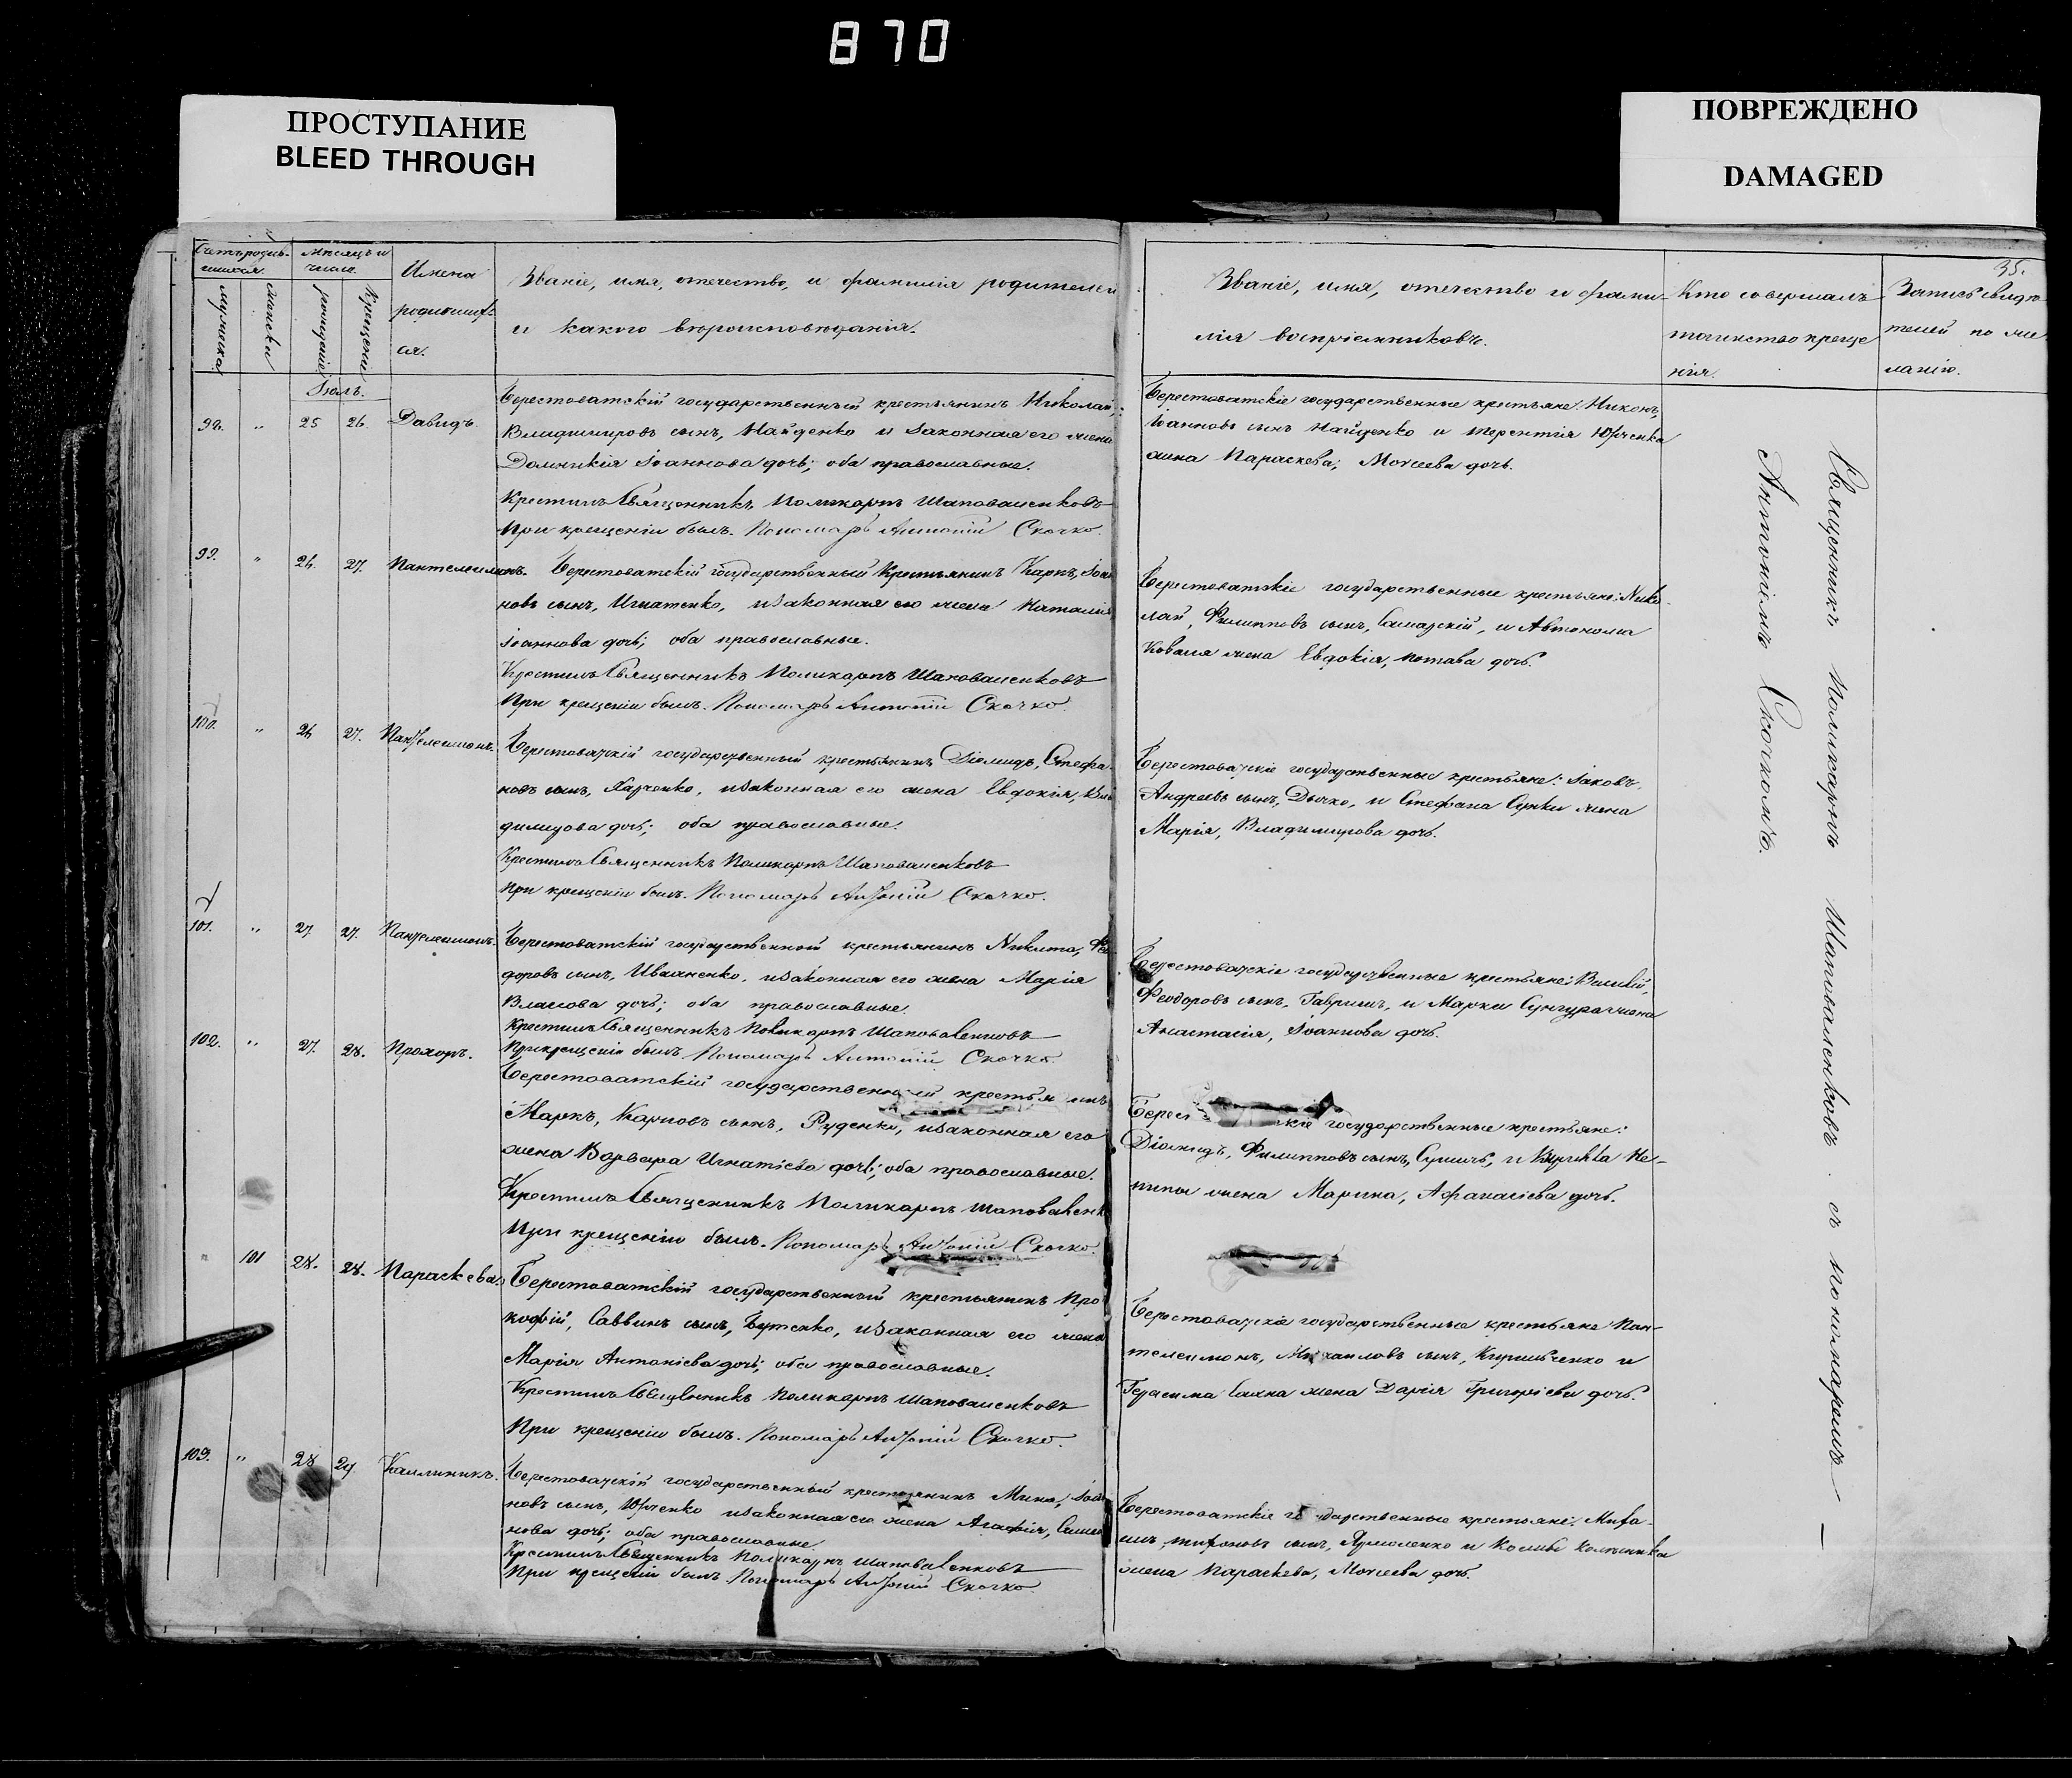 870
ПРОСТУПАНИЕ
BLEED THROUGH
ПОВРЕЖДЕНО
DAMAGED
35.
Счетъ родив-
шихся.
мужеска.
женска
Мѣсяцъ и
число.
рожденія
Крещенія
Имена
родивших-
ся.
Званіе, имя, отечество, и фамилія родителей
и какого вѣроисповѣданія.
Званіе, имя, отечество и фами-
лія воспріемниковъ.
Кто совершалъ
таинство креще
нія.
Запись свидѣ-
телей по же
ланію.
Іюль.
98. " 25 26. Давидъ.
Берестоватскій государственный крестьянинъ Николай,
Владимировъ сынъ, Найденко и законная его жена
Домникія Іоаннова дочь; оба православные.
Крестилъ Священникъ Поликарпъ Шаповаленковъ
При крещеніи былъ. Пономарь Антоній Скочко.
Берестоватскіе государственные крестьяне: Никонъ,
Іоанновъ сынъ Найденко и Терентія Юрченка
жена Параскева, Моисеева дочь.
99. " 26. 27. Пантелеимонъ.
Берестоватскій государственный Крестьянинъ Карпъ, Іоан
новъ сынъ, Игнатенко, и законная его жена Наталія
Іоаннова дочь; оба православные.
Крестилъ Священникъ Поликарпъ Шаповаленковъ
При крещеніи былъ. Пономарь Антоній Скочко.
Берестоватскіе государственные крестьяне: Нико-
лай, Филипповъ сынъ, Самарскій, и Автонома
Коваля жена Евдокія, дочь.
100. " 26 27. Пантелеимонъ.
Берестоватскій государственный крестьянинъ Діомидъ, Стефа-
новъ сынъ, Харченко, и законная его жена Евдокія, Вла
димирова дочь; оба православные.
Крестилъ Священникъ Поликарпъ Шаповаленковъ
При крещеніи былъ. Пономарь Антоній Скочко.
Берестоватскіе государственные крестьяне: Іаковъ,
Андреевъ сынъ, Дычко, и Стефана жена
Марія, Владимирова дочь.
101. " 27. 27. Пантелеимонъ.
Берестоватскій государственной крестьянинъ Никита, Фео
доровъ сынъ, Иващенко, и законная его жена Марія
Власова дочь; оба православные.
Крестилъ Священникъ Поликарпъ Шаповаленковъ
При крещеніи былъ Пономарь Антоній Скочко.
Берестоватскіе государственные крестьяне: Василій,
Феодоровъ сынъ, Гавришъ, и Марка Сунгура жена
Анастасія, Іоаннова дочь.
102. " 27. 28. Прохоръ.
Берестоватскій государственный крестьянинъ
Маркъ, Карповъ сынъ, Руденко, и законная его
жена Варвара Игнатіева дочь; оба православные.
Крестилъ Священникъ Поликарпъ Шаповаленк
При крещеніи былъ. Пономарь Антоній Скочко.
Берес кіе государственные крестьяне:
Діомидъ, Филипповъ сынъ, и Не-
пипы жена Марина, Афанасіева дочь.
" 101 28. 28. Параскева.
Берестоватскій государственный крестьянинъ Про
кофій, Саввинъ сынъ, Бутенко, и законная его жена
Марія Антоніева дочь; оба православные.
Крестилъ Священникъ Поликарпъ Шаповаленковъ
При крещеніи былъ. Пономарь Антоній Скочко.
Берестоватскіе государственные крестьяне Пан-
телеимонъ, Михаиловъ сынъ, Кириченко и
Герасима жена Дарія Григоріева дочь.
103. " 28 29 Каллиникъ.
Берестоватскій государственный крестьянинъ Мина, Іоан
новъ сынъ, Юрченко и законная его жена Агафія, Симео
нова дочь; оба православные.
Крестилъ Священникъ Поликарпъ Шаповаленковъ
При крещеніи былъ. Пономарь Антоній Скочко.
Берестоватскіе государственные крестьяне: Миха-
илъ, сынъ, Ярмоленко и
жена Параскева, Моисеева дочь.
Священникъ Поликарпъ Шаповаленковъ съ пономаремъ
Антоніемъ Скочкомъ.